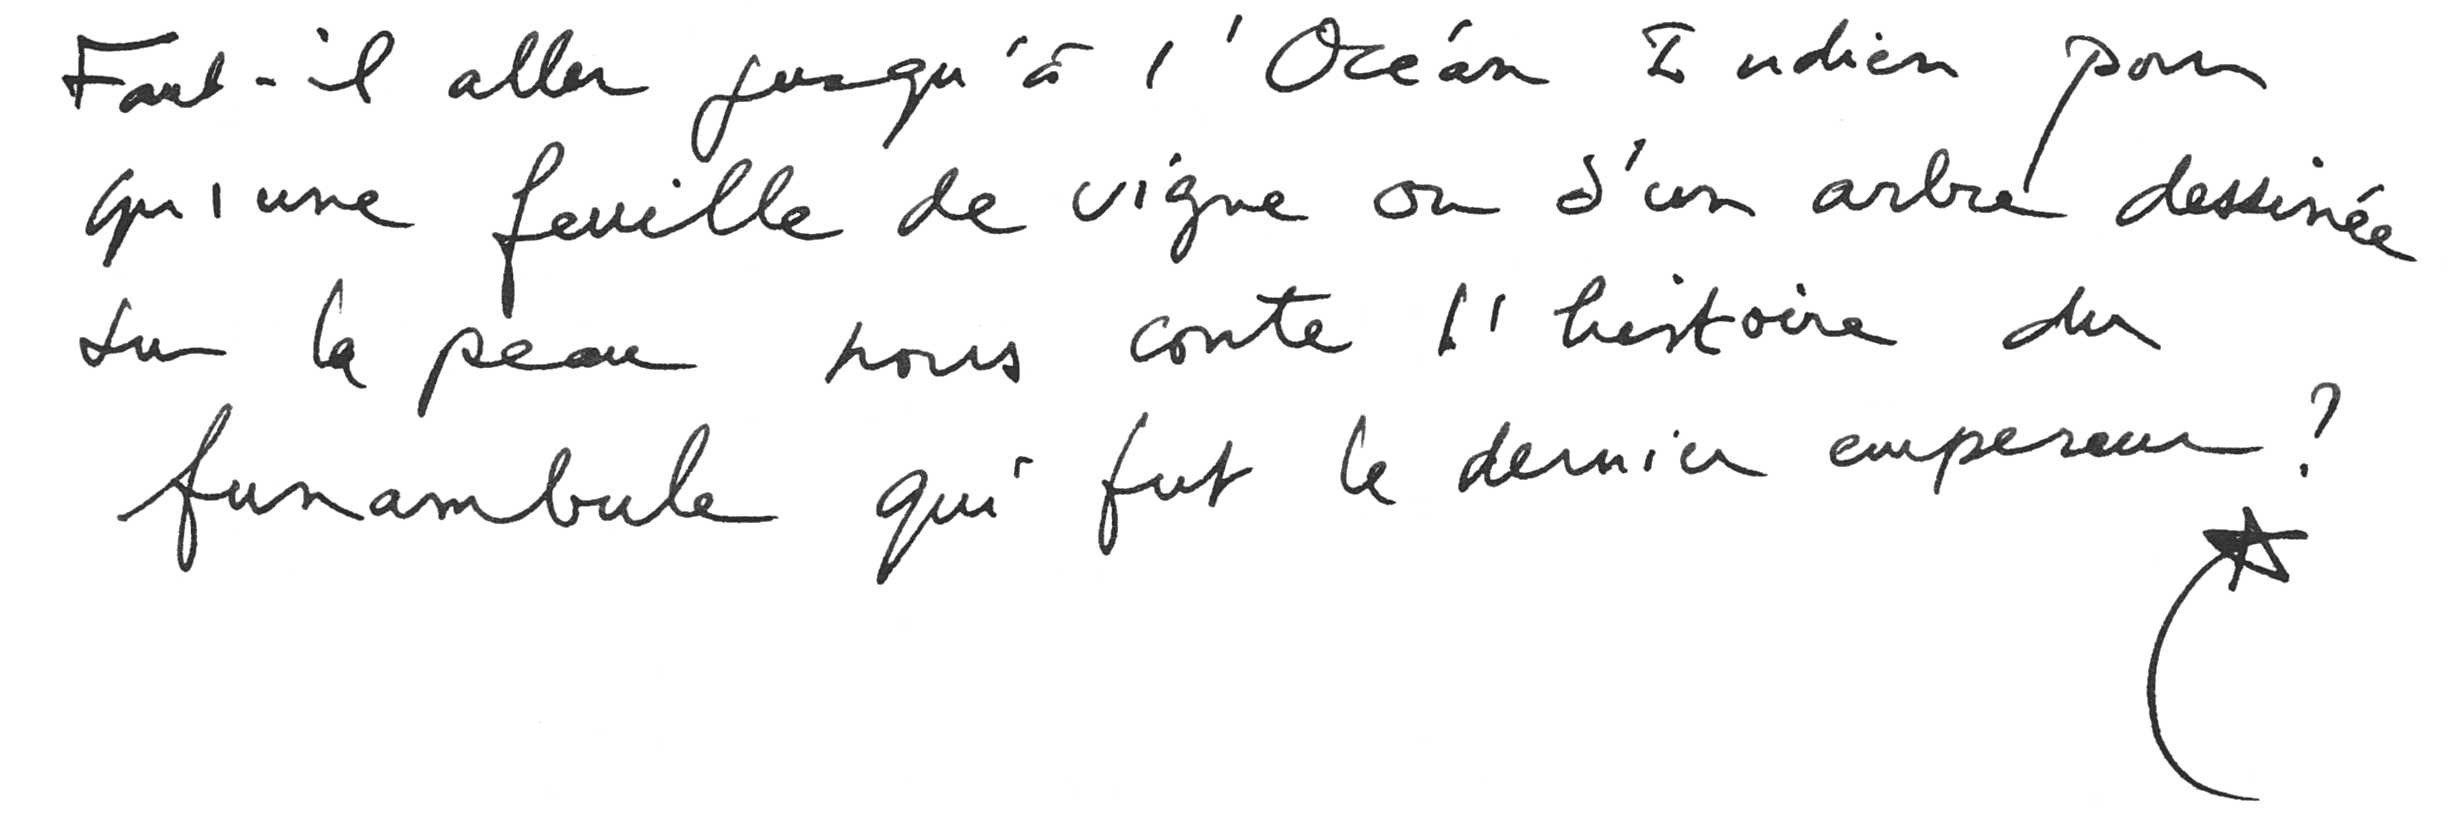 Faut-il aller jusqu'à l'Océan Indien pour
qu'une feuille de vigne ou d'un arbre dessinée
sur la peau nous conte l'histoire du
funambule qui fut le dernier empereur ?